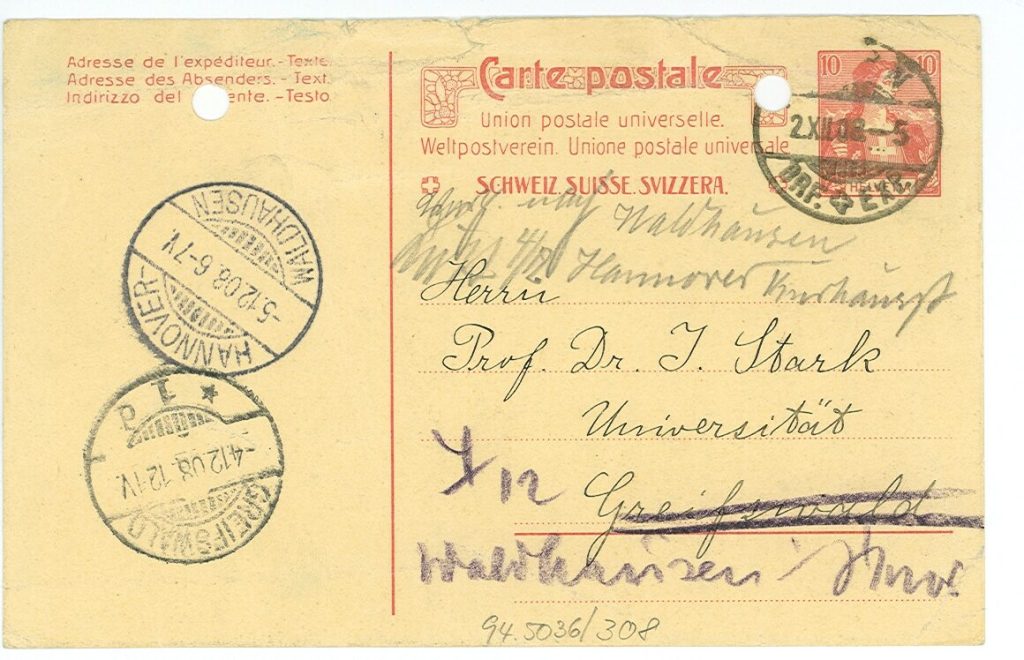 Adresse de l'expéditeur. - Texte.
Adresse des Absenders. - Text.
Indirizzo del ente. - Testo
Carte postale
Union postale universelle.
Weltpostverein. Unione postale universale
SCHWEIZ. SUISSE. SVIZZERA.
10 10
HELVETIA
2.XII.08-5
BRF. EXP.
nach Waldhausen
Hannover
Herrn
Prof. Dr. J. Stark
Universität
Greifswald
Waldhausen
HANNOVER-
WALDHAUSEN
-5.12.08. 6-7V.
GREIFSWALD
-4.12.08. 12-1V.
* 1 a
94.5036/308